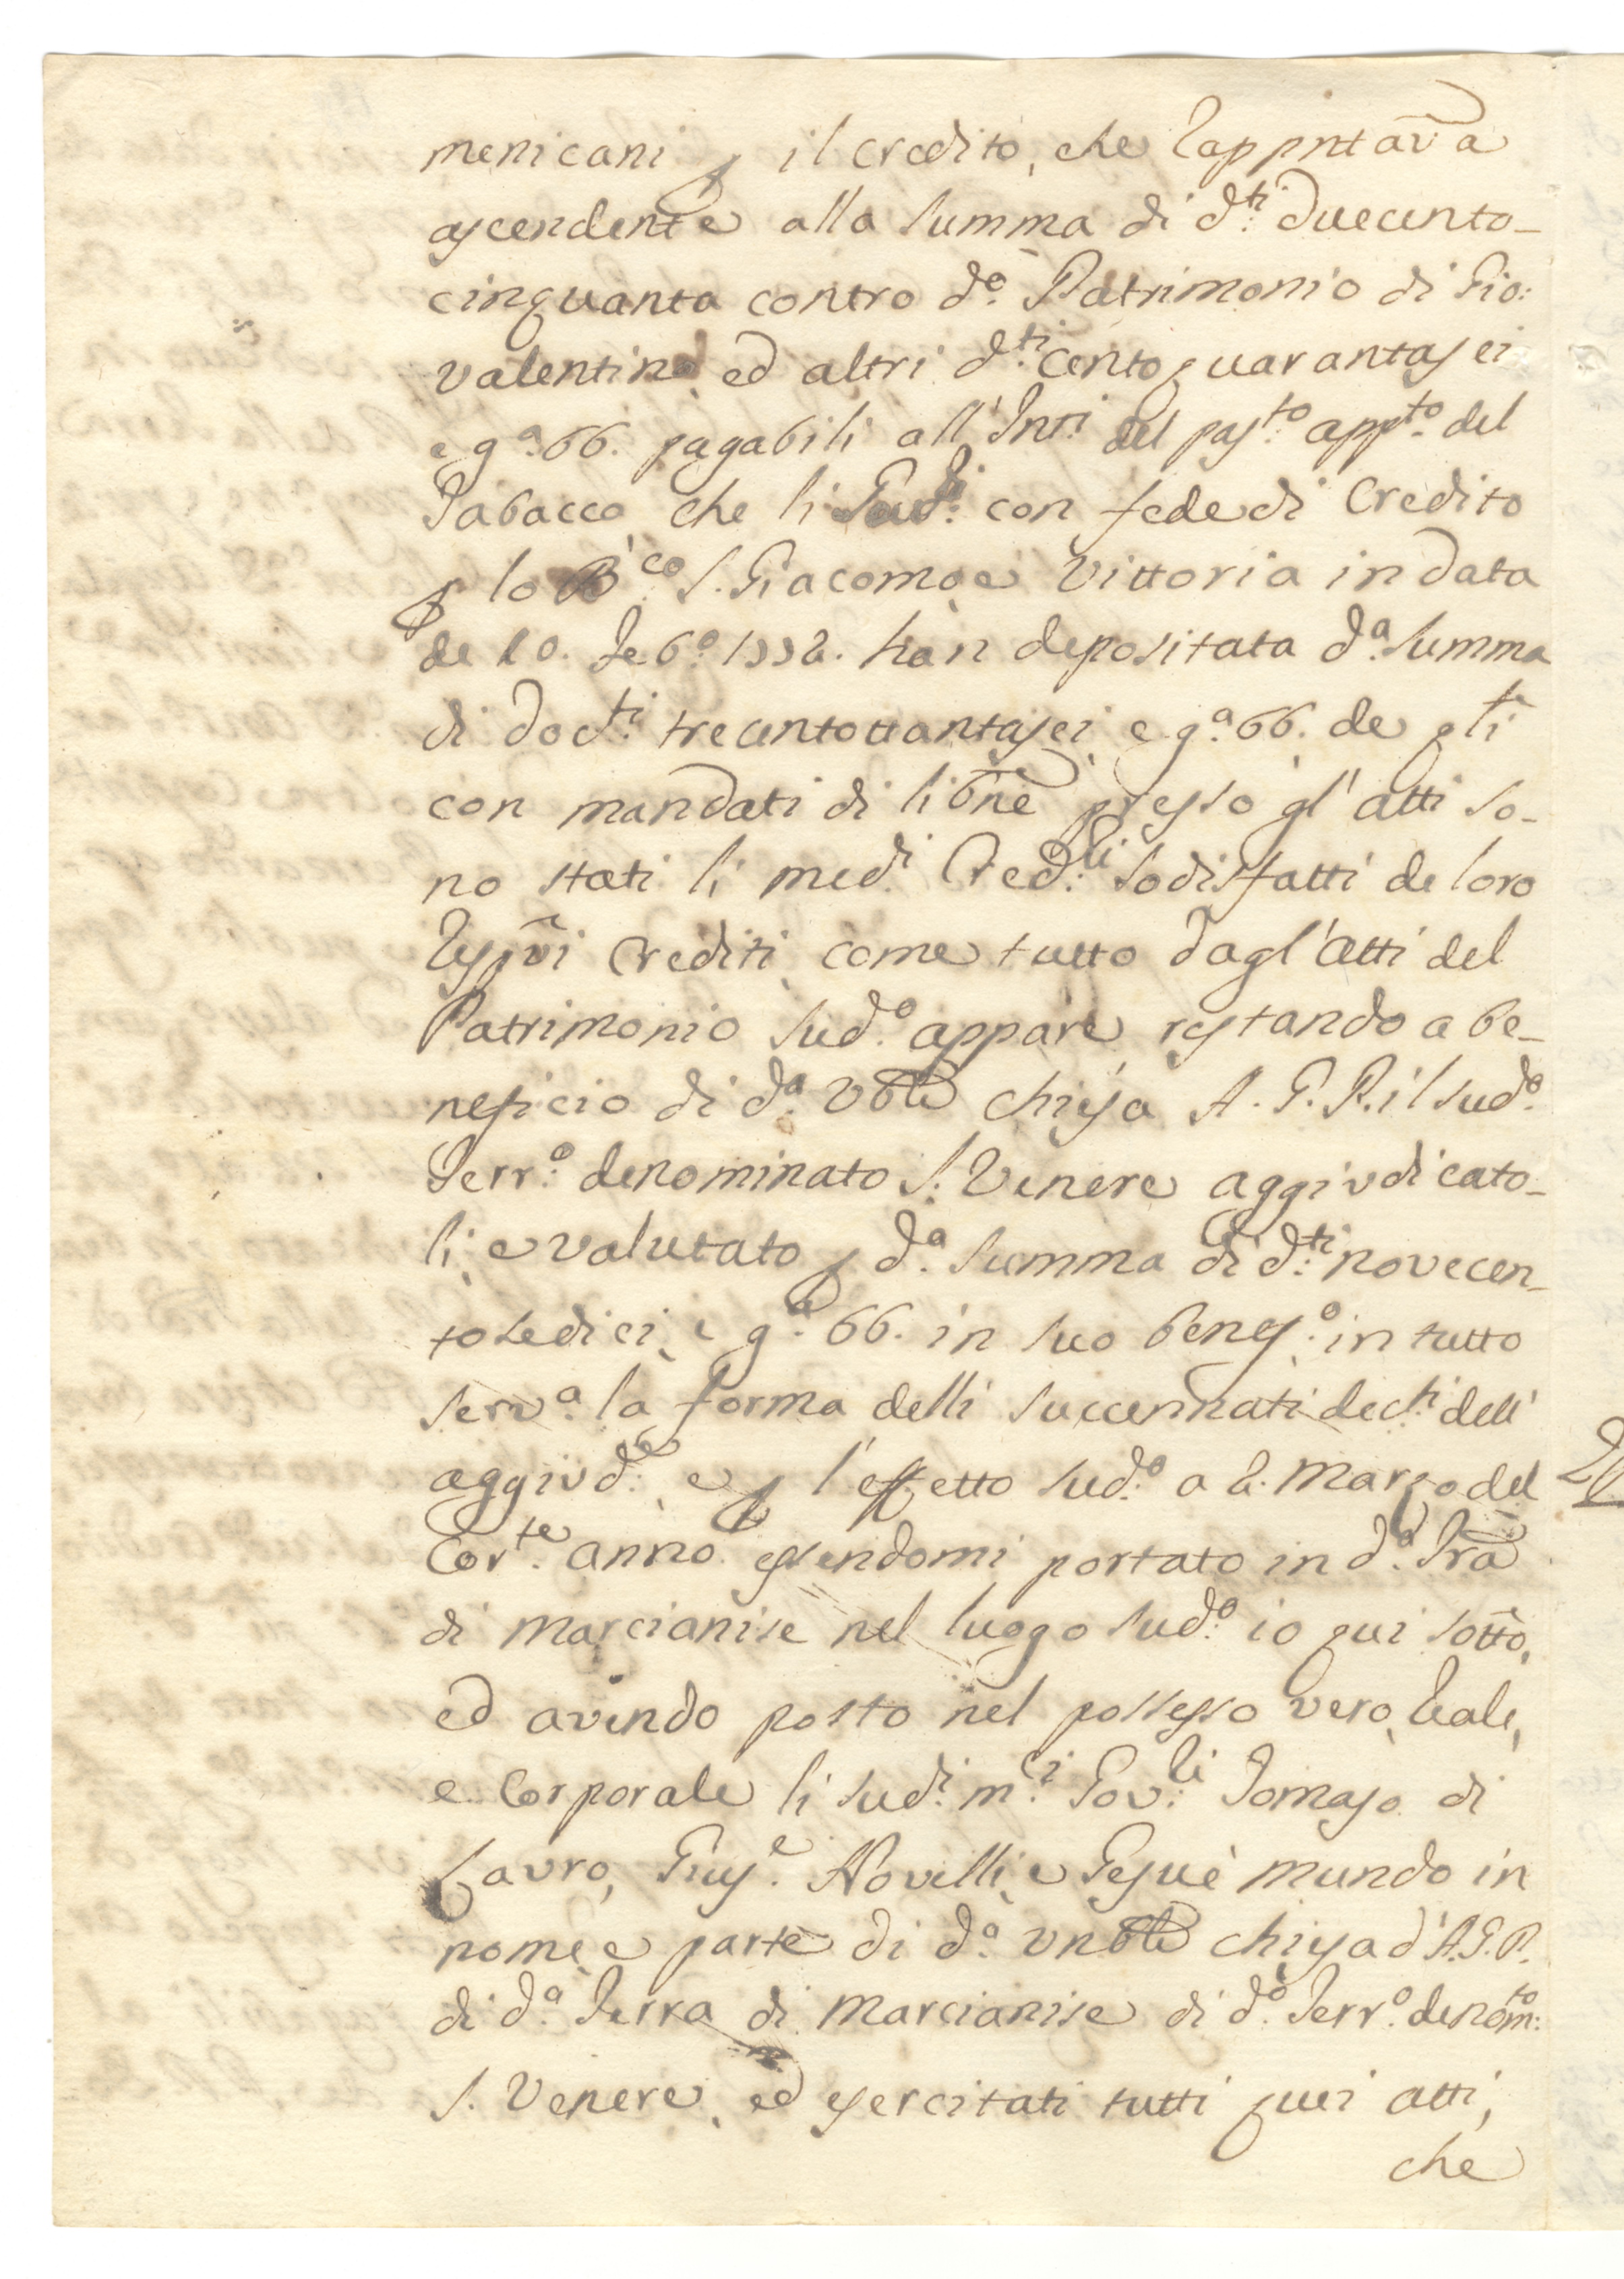 menicani p il credito, che rappntava
ascendente alla summa di d.ti duecento-
cinquanta contro d.o Patrimonio di Gio:
Valentino, ed altri d.ti centoquarantasei
e g.a 66. pagabili all'Inti del pas.to app.to del
Tabacco, che li Gov.li con fede di Credito
p lo B.co S. Giacomo, e Vittoria in data
de 10. Feb.o 1772. han depositata d.a summa
di doc.ti trecentottantasei, e g.a 66. de qli
con mandati di libne presso gl'atti so-
no stati li med.i Cred.li sodisfatti de loro
respvi Crediti, come tutto dagl'atti del
Patrimonio sud.o appare, restando a be-
neficio di d.a Vble Chiesa A. G. P. il sud.o
Terr.o denominato S. Venere aggiudicato-
li, e valutato p d.a summa di d.ti novecen-
tosedici, e g.a 66. in suo benef.o, in tutto
serv.a la forma delli succennati dec.ti dell'
aggiud.e, e p l'effetto sud.o a 2. Marzo del
Cor.te anno essendomi portato in d.a Tra
di Marcianise nel luogo sud.o io qui sotto,
ed avendo posto nel possesso vero, reale,
e Corporale li sud.i m.ci Gov.li Tomaso di
Lauro, Gius.e Novelli, e Gesuè Mundo in
nome, e parte di d.a Vnble Chiesa d'A.G.P.
di d.a Terra di Marcianise di d.o Terr.o denom.to:
S. Venere, ed esercitati tutti quei atti,
che